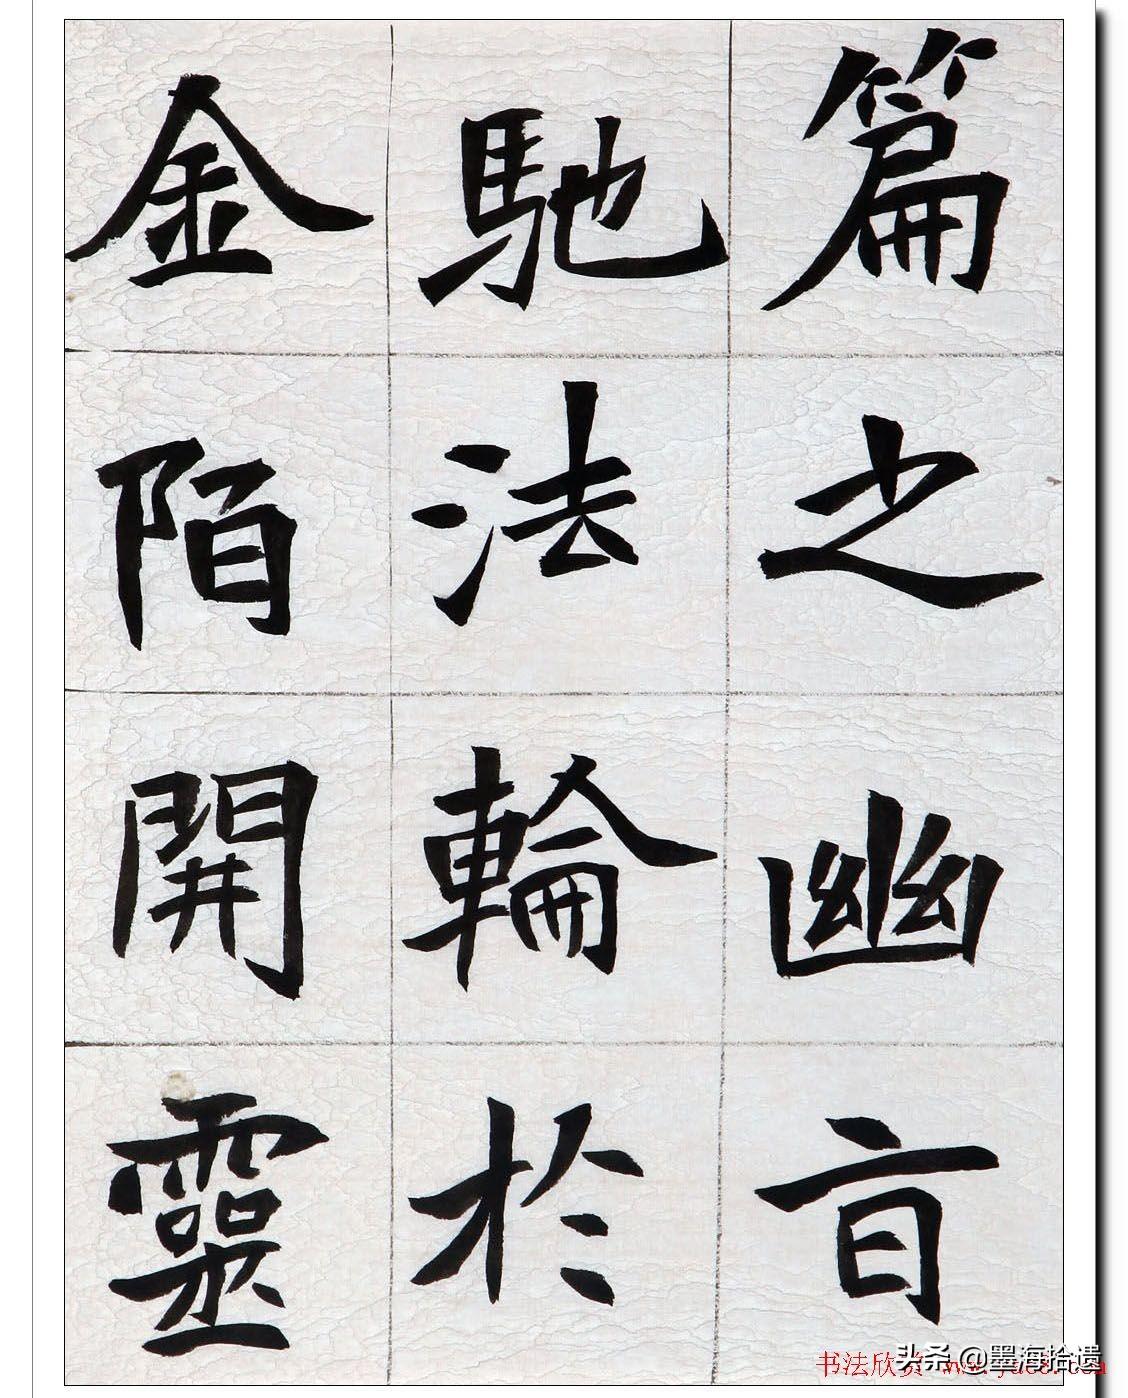 篇之幽㫖
馳法輪於
金陌開靈
书法欣赏 www.yac8.com
头条 @墨海拾遗